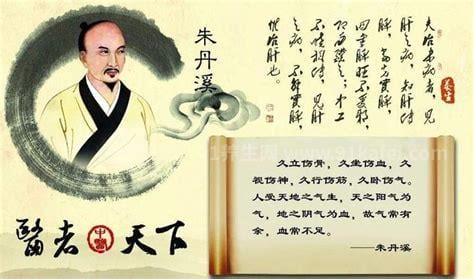 夫治未病者,見
肝之病,知肝傳
脾,當先實脾,
四季脾旺不受
邪,即補之;中工
不曉相傳,見肝
之病,不解實脾,
惟治肝也。
养生
朱丹溪
久立伤骨,久坐伤血,久
视伤神,久行伤筋,久卧伤气。
人受天地之气生,天之阳气为
气,地之阴气为血,故气常有
余,血常不足。
——朱丹溪
醫者中醫天下